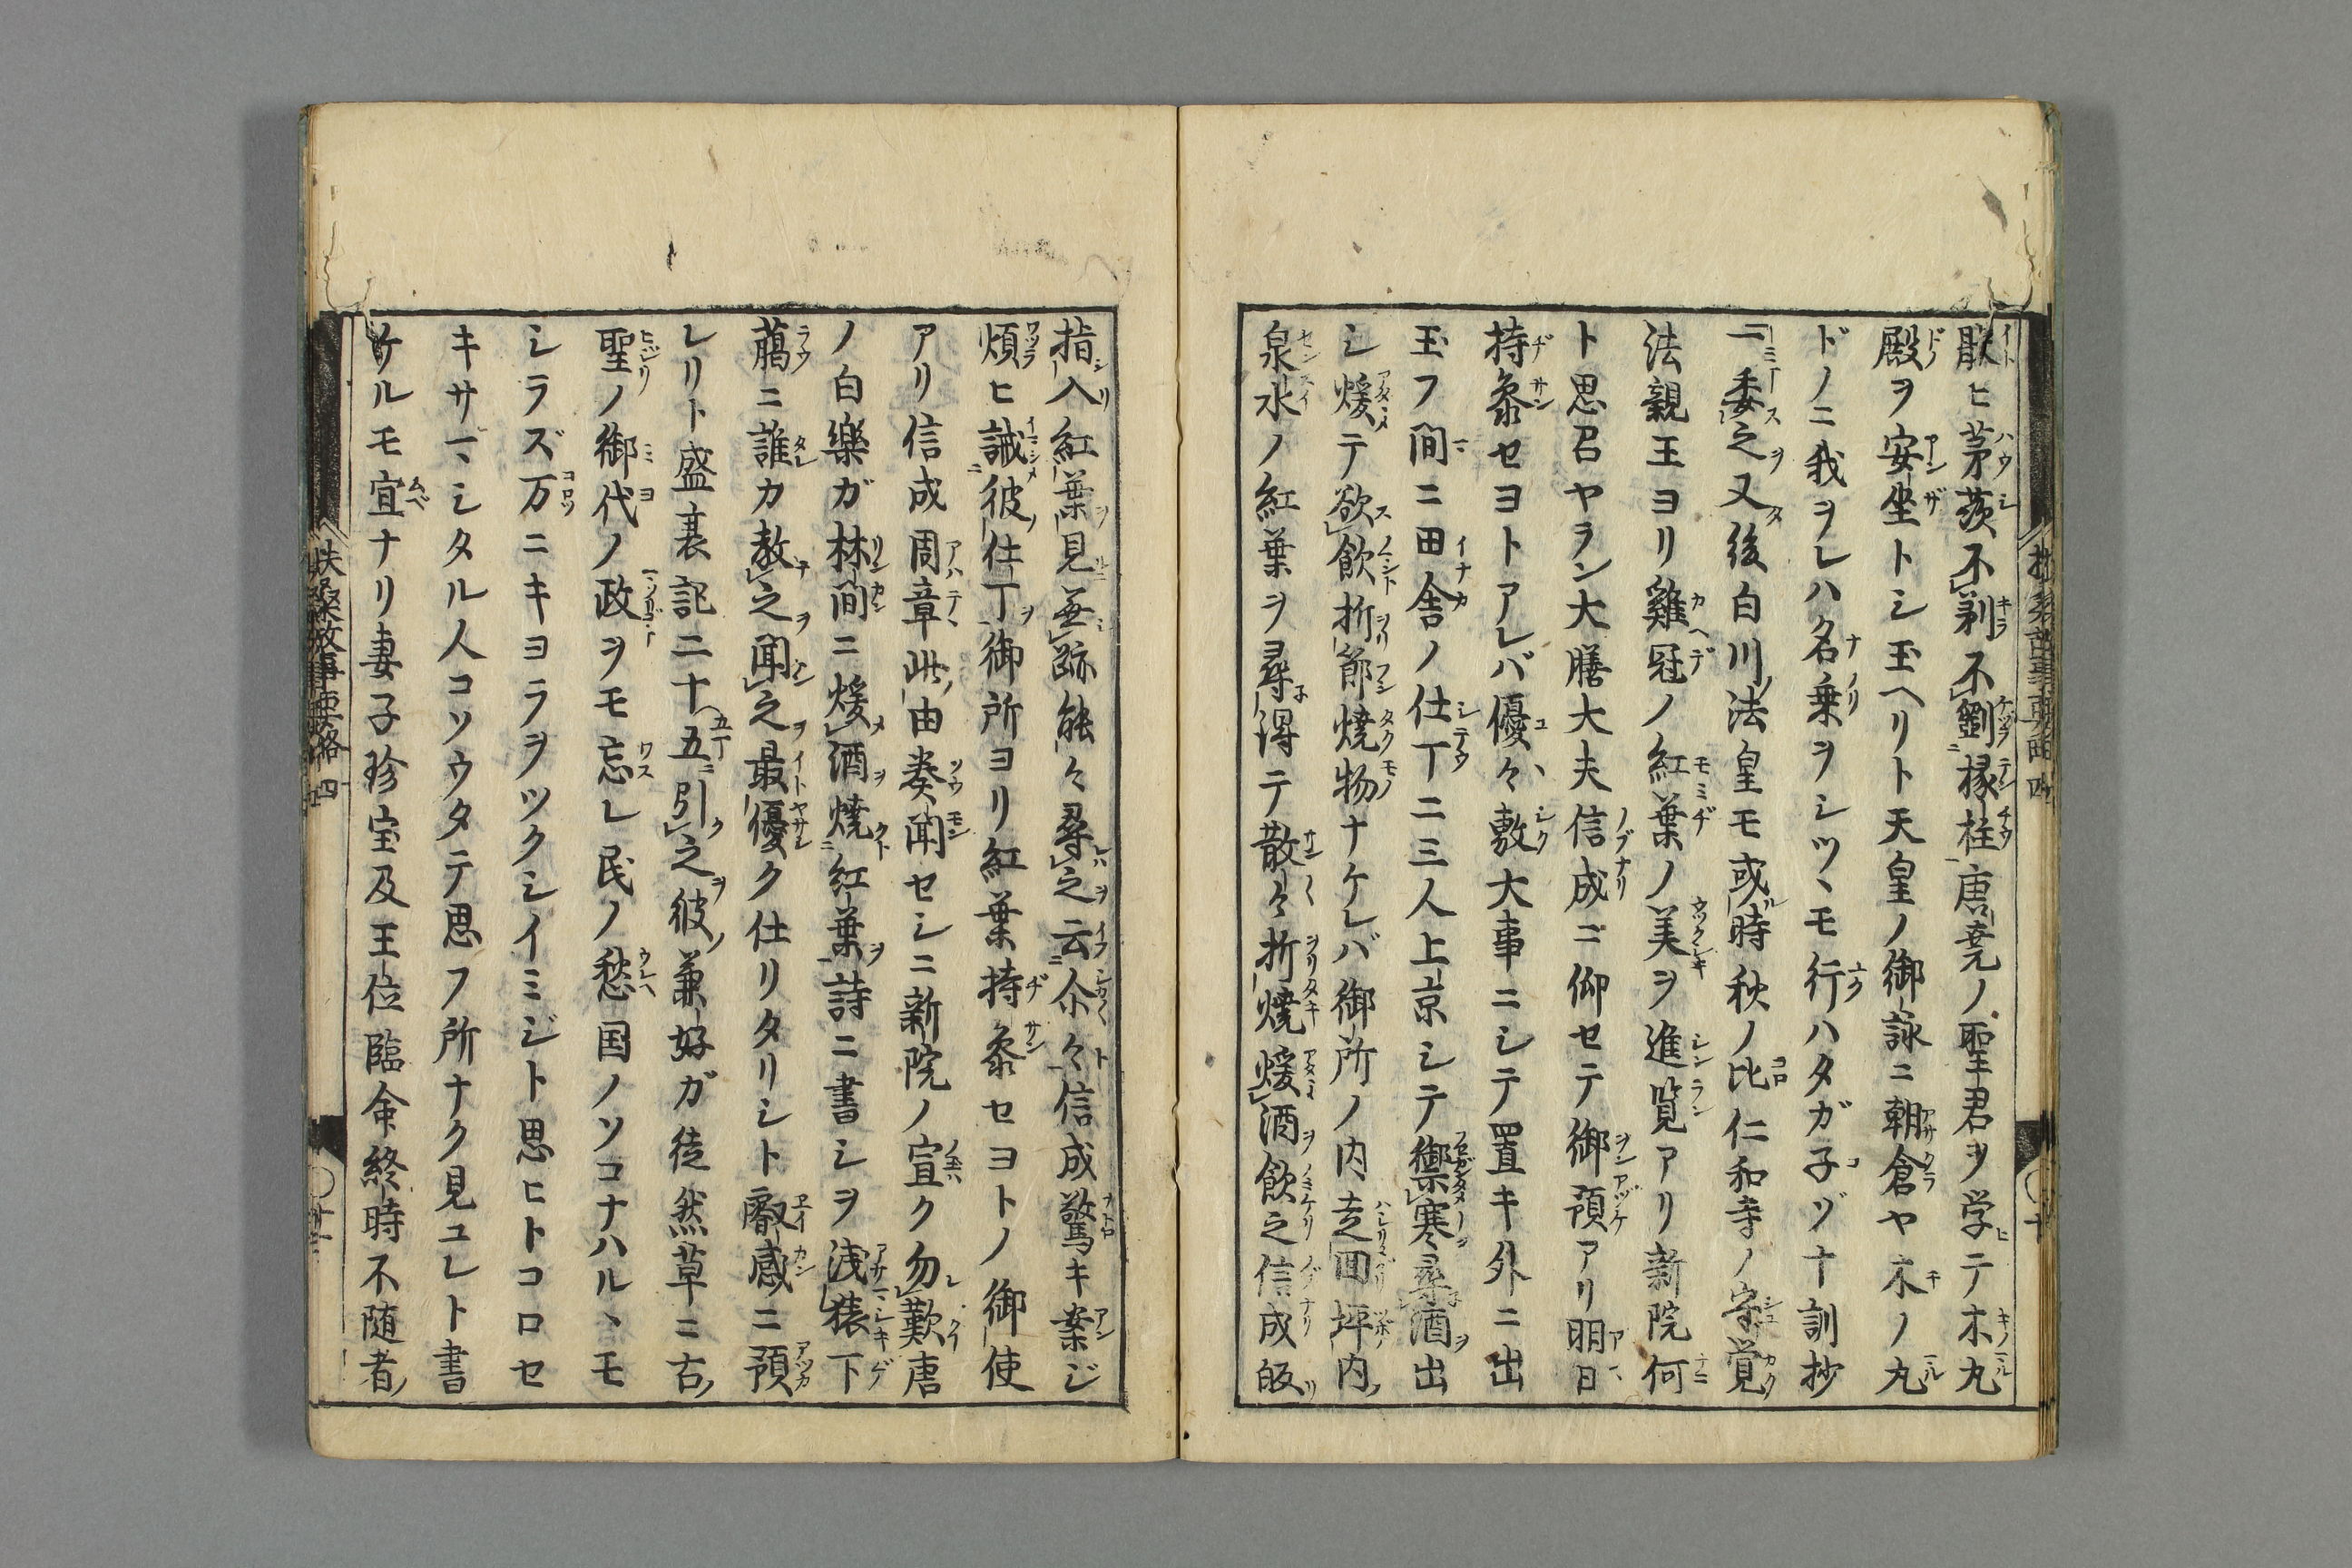 猒ヒ茅茨不剃不劉椽柱唐堯ノ聖君ヲ学テ木丸
殿ヲ安坐トシ玉ヘリト天皇ノ御詠ニ朝倉ヤ木ノ丸
ドノニ我ヲレハ名乗ヲシツヽモ行ハタガ子ゾナト訓抄
一委之又後白川ノ法皇モ或時秋ノ比仁和寺ノ守覚
法親王ヨリ雞冠ノ紅葉ノ美ヲ進覧アリ新院何
ト思召ヤラン大膳大夫信成ニ仰セテ御預アリ明日
持参セヨトアレバ優々敷大事ニシテ置キ外ニ出
玉フ間ニ田舎ノ仕丁二三人上京シテ禦寒尋酒出
シ煖テ欲飲折節焼物ナケレバ御所ノ内走回坪内
泉水ノ紅葉ヲ尋得テ散々折焼煖酒飲之信成皈
指入紅葉見無跡能々尋之云尒々信成驚キ案ジ
煩ヒ誡彼仕丁御所ヨリ紅葉持参セヨトノ御使
アリ信成周章此由奏聞セシニ新院ノ宣ク勿歎唐
ノ白樂ガ林間ニ煖酒焼紅葉詩ニ書シヲ浅猿下
臈ニ誰カ教之聞之最優ク仕リタリシト叡感ニ預
レリト盛衰記二十五引之彼兼好ガ徒然草ニ古
聖ノ御代ノ政ヲモ忘レ民ノ愁国ノソコナハルヽモ
シラズ万ニキヨラヲツクシイミジト思ヒトコロセ
キサマシタル人コソウタテ思フ所ナク見ユレト書
ケルモ宜ナリ妻子珍宝及王位臨命終時不随者
扶桑故事要略 四